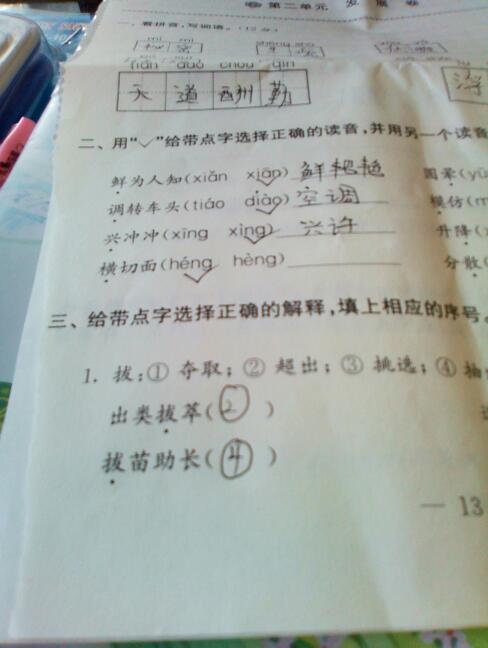 第二单元 发展卷
一、看拼音,写词语。(12分)
mì mì
秘密
tiān dào chóu qín
天道酬勤
二、用“✓”给带点字选择正确的读音,并用另一个读音
鲜为人知(xiān xiǎn) 鲜艳 圆晕(yù
调转车头(tiáo diào) 空调 模仿(m
兴冲冲(xīng xìng) 兴许 升降(
横切面(héng hèng) 分散(
三、给带点字选择正确的解释,填上相应的序号。
1. 拔:① 夺取;② 超出;③ 挑选;④ 抽
出类拔萃(2)
拔苗助长(4)
— 13